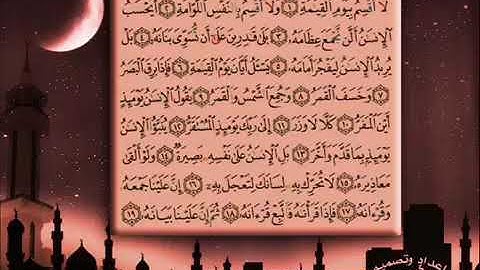 لَآ أُقْسِمُ بِيَوْمِ ٱلْقِيَٰمَةِ ۝١ وَلَآ أُقْسِمُ بِٱلنَّفْسِ ٱللَّوَّامَةِ ۝٢ أَيَحْسَبُ
ٱلْإِنسَٰنُ أَلَّن نَّجْمَعَ عِظَامَهُۥ ۝٣ بَلَىٰ قَٰدِرِينَ عَلَىٰٓ أَن نُّسَوِّىَ بَنَانَهُۥ ۝٤ بَلْ
يُرِيدُ ٱلْإِنسَٰنُ لِيَفْجُرَ أَمَامَهُۥ ۝٥ يَسْـَٔلُ أَيَّانَ يَوْمُ ٱلْقِيَٰمَةِ ۝٦ فَإِذَا بَرِقَ ٱلْبَصَرُ
۝٧ وَخَسَفَ ٱلْقَمَرُ ۝٨ وَجُمِعَ ٱلشَّمْسُ وَٱلْقَمَرُ ۝٩ يَقُولُ ٱلْإِنسَٰنُ يَوْمَئِذٍ
أَيْنَ ٱلْمَفَرُّ ۝١٠ كَلَّا لَا وَزَرَ ۝١١ إِلَىٰ رَبِّكَ يَوْمَئِذٍ ٱلْمُسْتَقَرُّ ۝١٢ يُنَبَّؤُا۟ ٱلْإِنسَٰنُ
يَوْمَئِذٍۭ بِمَا قَدَّمَ وَأَخَّرَ ۝١٣ بَلِ ٱلْإِنسَٰنُ عَلَىٰ نَفْسِهِۦ بَصِيرَةٌ ۝١٤ وَلَوْ أَلْقَىٰ
مَعَاذِيرَهُۥ ۝١٥ لَا تُحَرِّكْ بِهِۦ لِسَانَكَ لِتَعْجَلَ بِهِۦٓ ۝١٦ إِنَّ عَلَيْنَا جَمْعَهُۥ
وَقُرْءَانَهُۥ ۝١٧ فَإِذَا قَرَأْنَٰهُ فَٱتَّبِعْ قُرْءَانَهُۥ ۝١٨ ثُمَّ إِنَّ عَلَيْنَا بَيَانَهُۥ ۝١٩
إعداد وتصميم